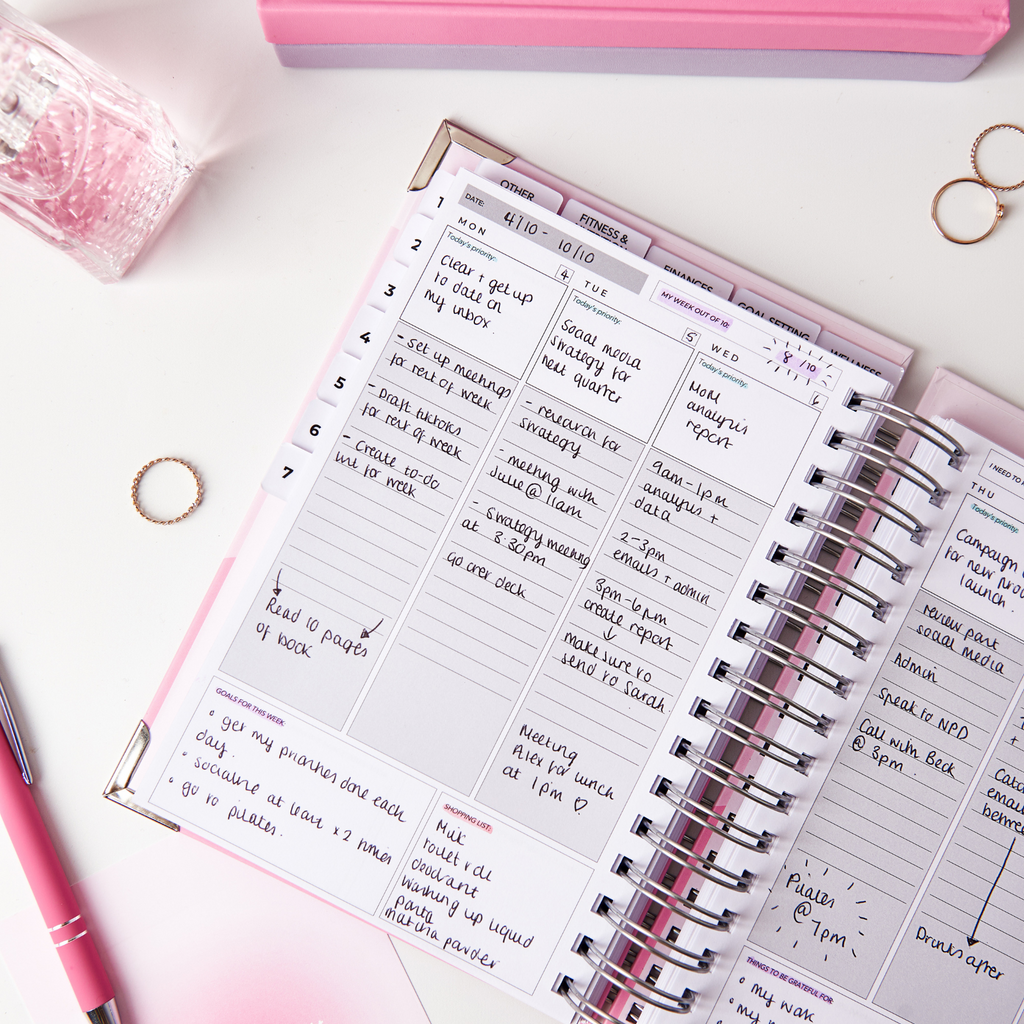 OTHER
FITNESS &
FINANCES
GOAL SETTING
WELLNESS
1
2
3
4
5
6
7
DATE: 4/10 - 10/10
MY WEEK OUT OF 10:
8 /10
MON 4
Today's priority:
Clear + get up
to date on
my inbox.
- set up meetings
for rest of week
- Draft tiktoks
for rest of week
- Create to-do
list for week
Read 10 pages
of book
TUE 5
Today's priority:
Social media
strategy for
next quarter
- research for
strategy
- meeting with
Julie @ 11am
- strategy meeting
at 3:30pm
go over deck
WED 6
Today's priority:
MoM
analysis
report
9am-1pm
analysis +
data
2-3pm
emails + admin
3pm-6pm
create report
↓
make sure to
send to Sarah.
Meeting
Alex for lunch
at 1pm ♡
GOALS FOR THIS WEEK
• get my priorities done each
day.
• socialise at least x 2 times
• go to pilates.
SHOPPING LIST:
Milk
toilet roll
deodorant
washing up liquid
pasta
matcha powder
I NEED TO
THU
Today's priority:
Campaign
for new
launch.
review past
social media
Admin
Speak to NPD
Call with Beck
@ 3pm.
Pilates
@
7pm
emails
Drinks after
THINGS TO BE GRATEFUL FOR
• my
• my